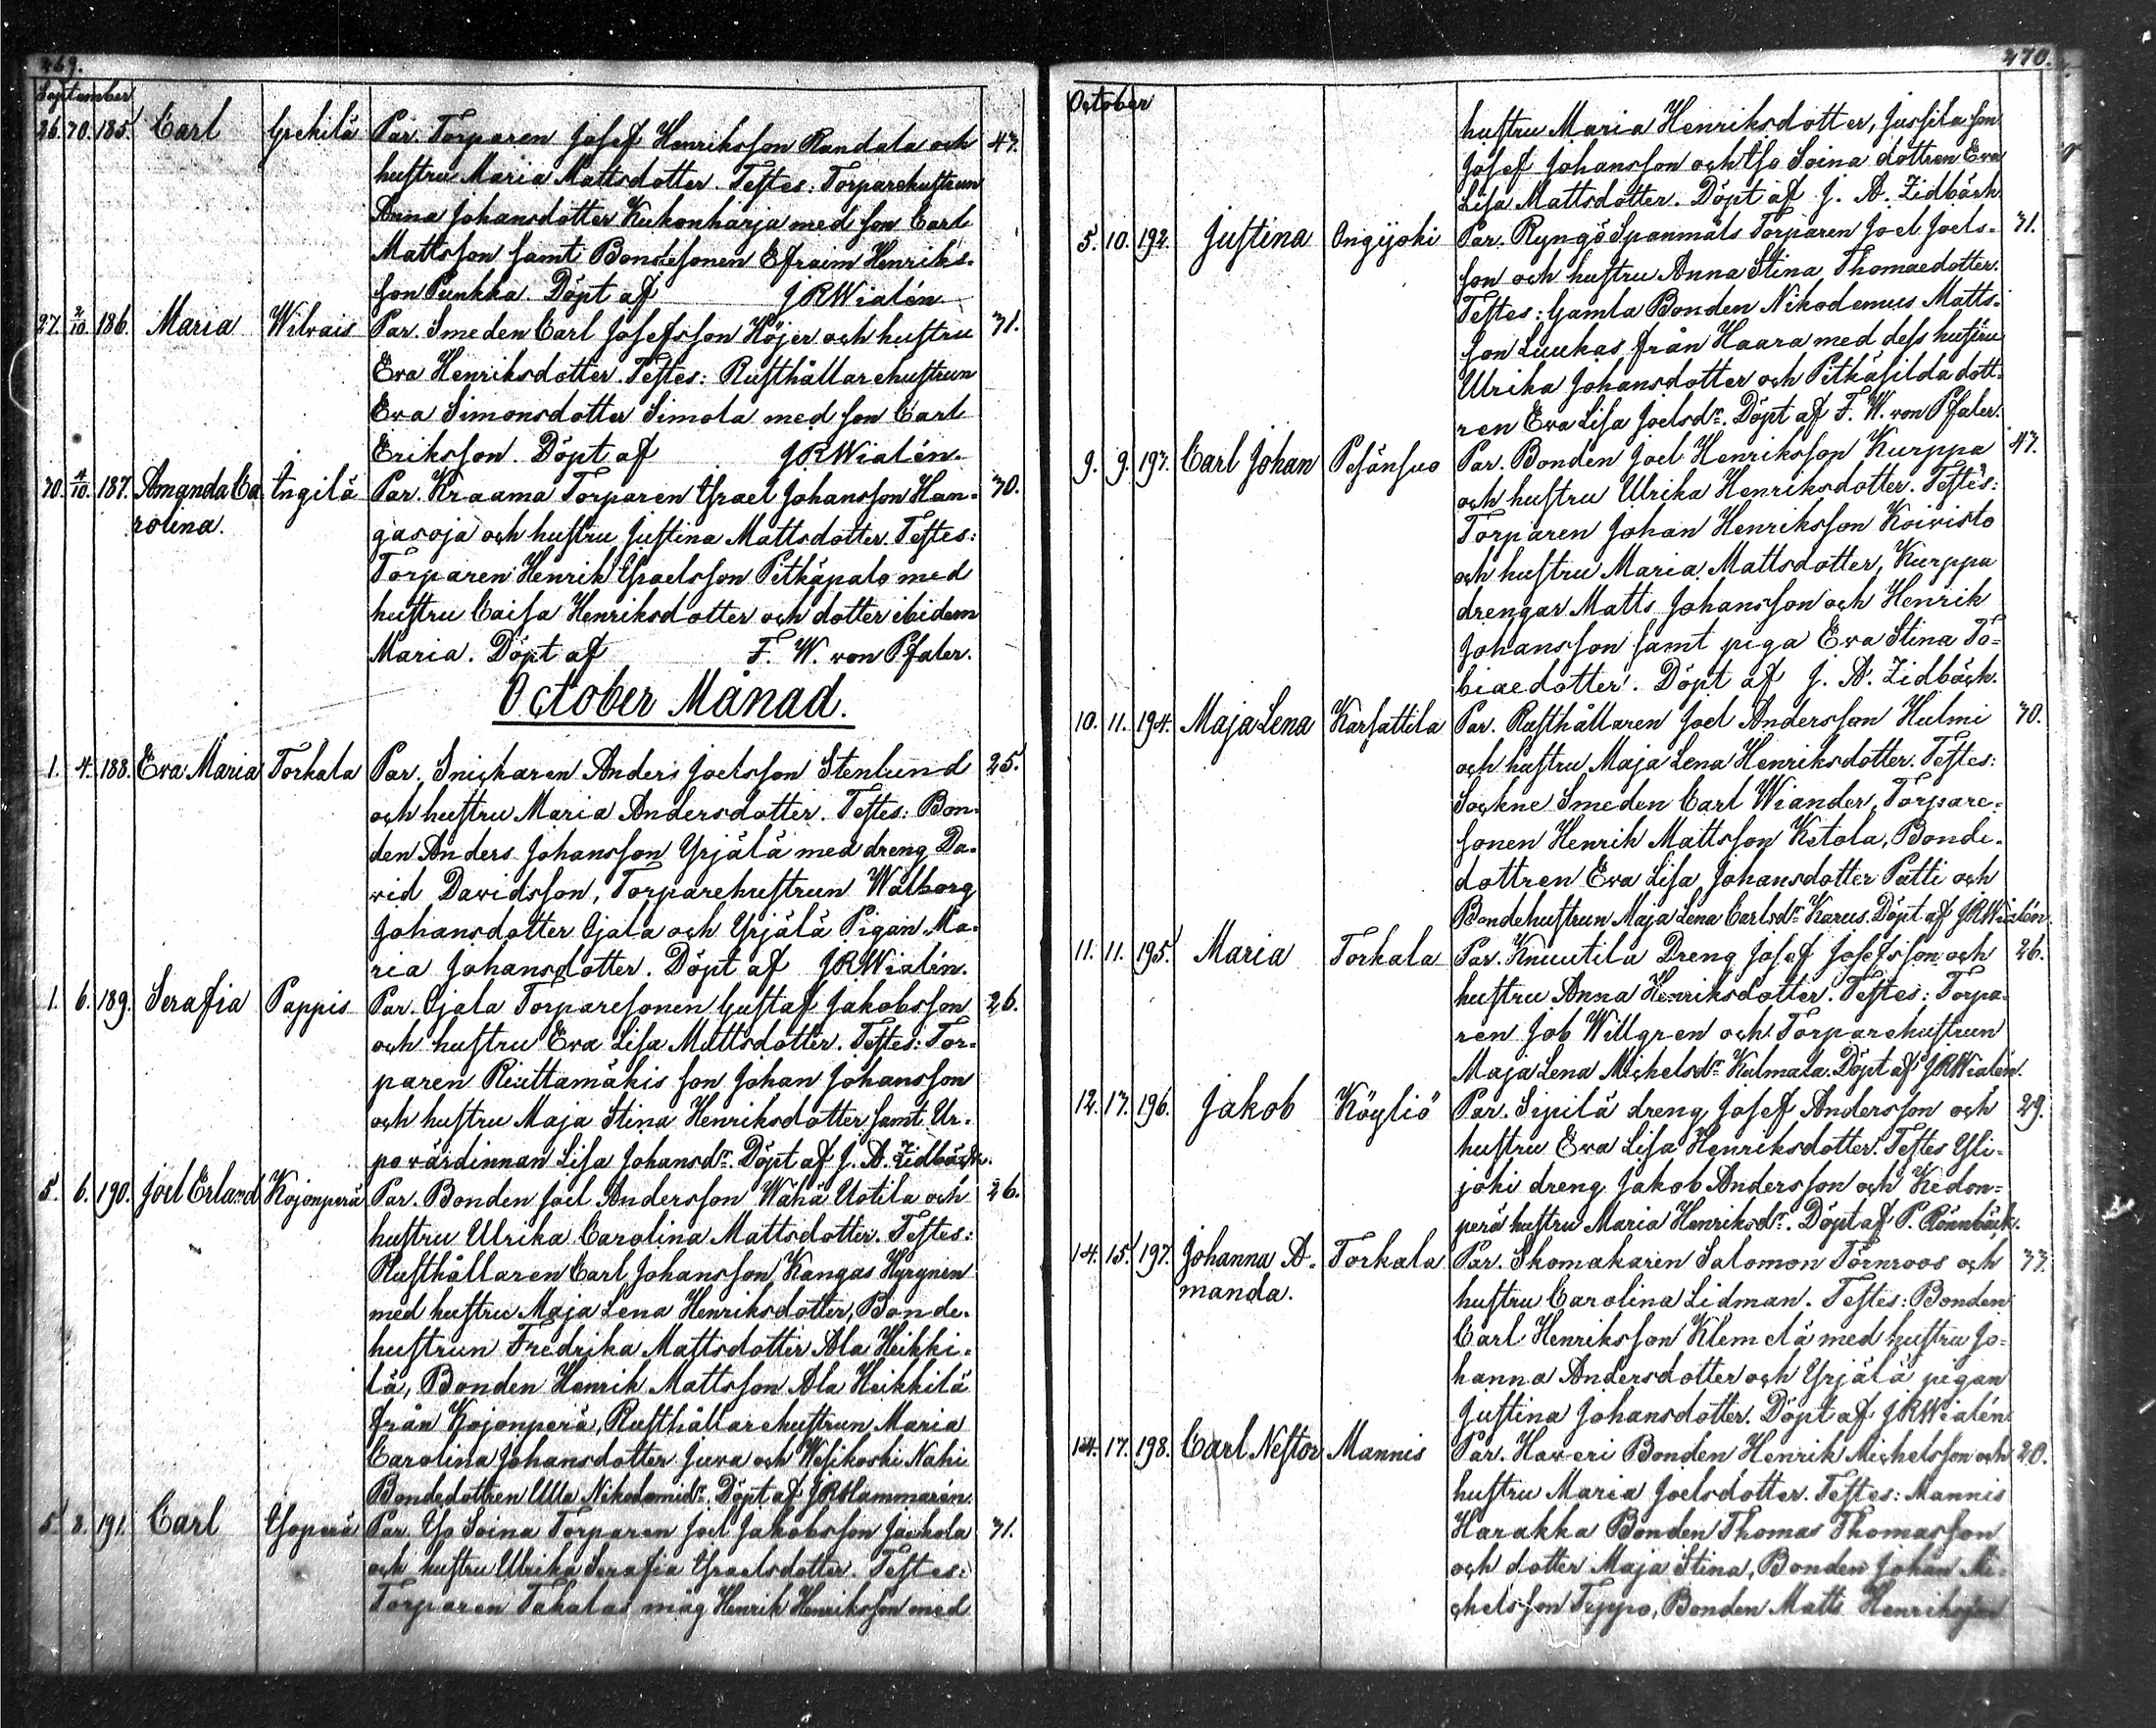 269.
September
26. 30. 185. Carl Grekilä Par. Torparen Josef Henriksson Randala och 43.
hustru Maria Mattsdotter. Testes: Torparehustrun
Anna Johansdotter Kukonharja med son Carl
Mattsson samt Bondesonen Efraim Henriks-
son Punkka. Döpt af JRWialén
27. 2/10. 186. Maria Wilvais Par. Smeden Carl Josefsson Höjer och hustru 31.
Eva Henriksdotter. Testes: Rusthållarehustrun
Eva Simonsdotter Simola med son Carl
Eriksson. Döpt af JRWialén.
30. 4/10. 187. Amanda Ca Ängilä Par. Kraama Torparen Israel Johansson Han- 30.
rolina. gasoja och hustru Justina Mattsdotter. Testes:
Torparen Henrik Israelsson Pitkäpalo med
hustru Caisa Henriksdotter och dotter ibidem
Maria. Döpt af F. W. von Pfaler.
October Månad.
1. 4. 188. Eva Maria Torkala Par. Snickaren Anders Joelsson Stenlund 25.
och hustru Maria Andersdotter. Testes: Bon-
den Anders Johansson Yrjälä med dreng Da-
vid Davidsson, Torparehustrun Walborg
Johansdotter Ojala och Yrjälä Pigan Ma-
ria Johansdotter. Döpt af JRWialén.
1. 6. 189. Serafia Pappis Par. Ojala Torparesonen Gustaf Jakobsson 26.
och hustru Eva Lisa Mattsdotter. Testes: Tor-
paren Riuttamäkis son Johan Johansson
och hustru Maja Stina Henriksdotter samt Ur-
po värdinnan Lisa Johansdr. Döpt af J. A. Zidbäck.
5. 6. 190. Joel Erland Kojonperä Par. Bonden Joel Andersson Wähä Uotila och 26.
hustru Ulrika Carolina Mattsdotter. Testes:
Rusthållaren Carl Johansson Kangas Hyrynen
med hustru Maja Lena Henriksdotter, Bonde-
hustrun Fredrika Mattsdotter Ala Heikki-
lä, Bonden Henrik Mattsson Ala Heikkilä
från Kojonperä, Rusthållarehustrun Maria
Carolina Johansdotter Juva och Wesikoski Nahi
Bondedottren Ulla Nikodemidr. Döpt af JRHammarén.
5. 8. 191. Carl Isoperä Par. Iso Soina Torparen Joel Jakobsson Jaakola 31.
och hustru Ulrika Serafia Israelsdotter. Testes:
Torparen Takalas måg Henrik Henriksson med
270.
October
hustru Maria Henriksdotter, Jussila son
Josef Johansson och Iso Soina dottren Eva
Lisa Mattsdotter. Döpt af J. A. Zidbäck
5. 10. 192. Justina Ongijoki Par. Ryngö Spanmåls Torparen Joel Joels- 31.
son och hustru Anna Stina Thomaedotter.
Testes: Gamla Bonden Nikodemus Matts-
son Luukas från Haara med dess hustru
Ulrika Johansdotter och Pitkäsilda dott-
ren Eva Lisa Joelsdr. Döpt af F. W. von Pfaler.
9. 9. 193. Carl Johan Pesänsuo Par. Bonden Joel Henriksson Kurppa 43.
och hustru Ulrika Henriksdotter. Testes:
Torparen Johan Henriksson Koivisto
och hustru Maria Mattsdotter, Kurppa
drengar Matts Johansson och Henrik
Johansson samt piga Eva Stina To-
biaedotter. Döpt af J. A. Zidbäck.
10. 11. 194. Maja Lena Karsattila Par. Rusthållaren Joel Andersson Hulmi 30.
och hustru Maja Lena Henriksdotter. Testes:
Sockne Smeden Carl Wiander, Torpare-
sonen Henrik Mattsson Ketola, Bonde-
dottren Eva Lisa Johansdotter Patti och
Bondehustrun Maja Lena Carlsdr Karus. Döpt af JRWialén.
11. 11. 195. Maria Torkala Par. Knuutila Dreng Josef Josefsson och 26.
hustru Anna Henriksdotter. Testes: Torpa-
ren Job Willgren och Torparehustrun
Maja Lena Michelsdr Kulmala. Döpt af JRWialén.
12. 13. 196. Jakob Köyliö Par. Sipilä dreng Josef Andersson och 29.
hustru Eva Lisa Henriksdotter. Testes Yli-
joki dreng Jakob Andersson och Kedon-
perä hustru Maria Henriksdr. Döpt af P. Rönnbäck.
14. 15. 197. Johanna A- Torkala Par. Skomakaren Salomon Törnroos och 33.
manda. hustru Carolina Lidman. Testes: Bonden
Carl Henriksson Klemelä med hustru Jo-
hanna Andersdotter och Yrjälä pigan
Justina Johansdotter. Döpt af JRWialén.
14. 17. 198. Carl Nestor Mannis Par. Haveri Bonden Henrik Michelsson och 20.
hustru Maria Joelsdotter. Testes: Mannis
Harakka Bonden Thomas Thomasson
och dotter Maja Stina, Bonden Johan Mi-
chelsson Teppo, Bonden Matts Henriksson